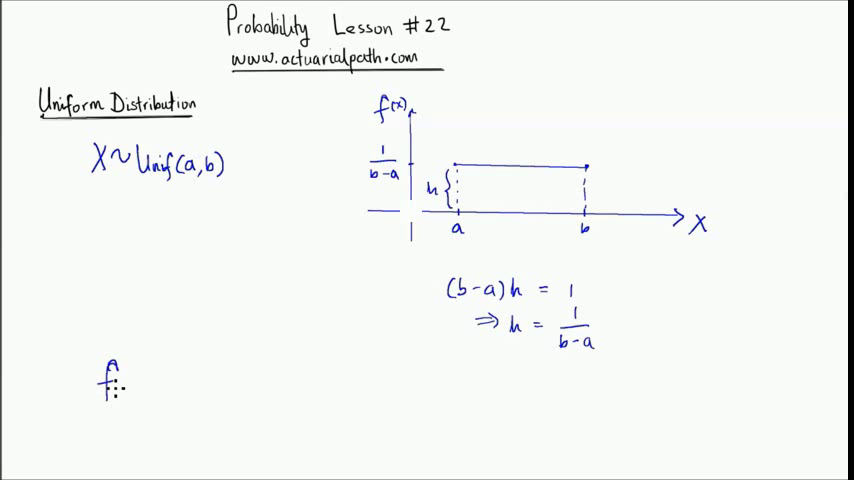 Probability Lesson #22
www.actuarialpath.com
Uniform Distribution
X~Unif(a,b)
f(x)
1/(b-a)
h
a
b
X
(b-a)h = 1
⇒ h = 1/(b-a)
f